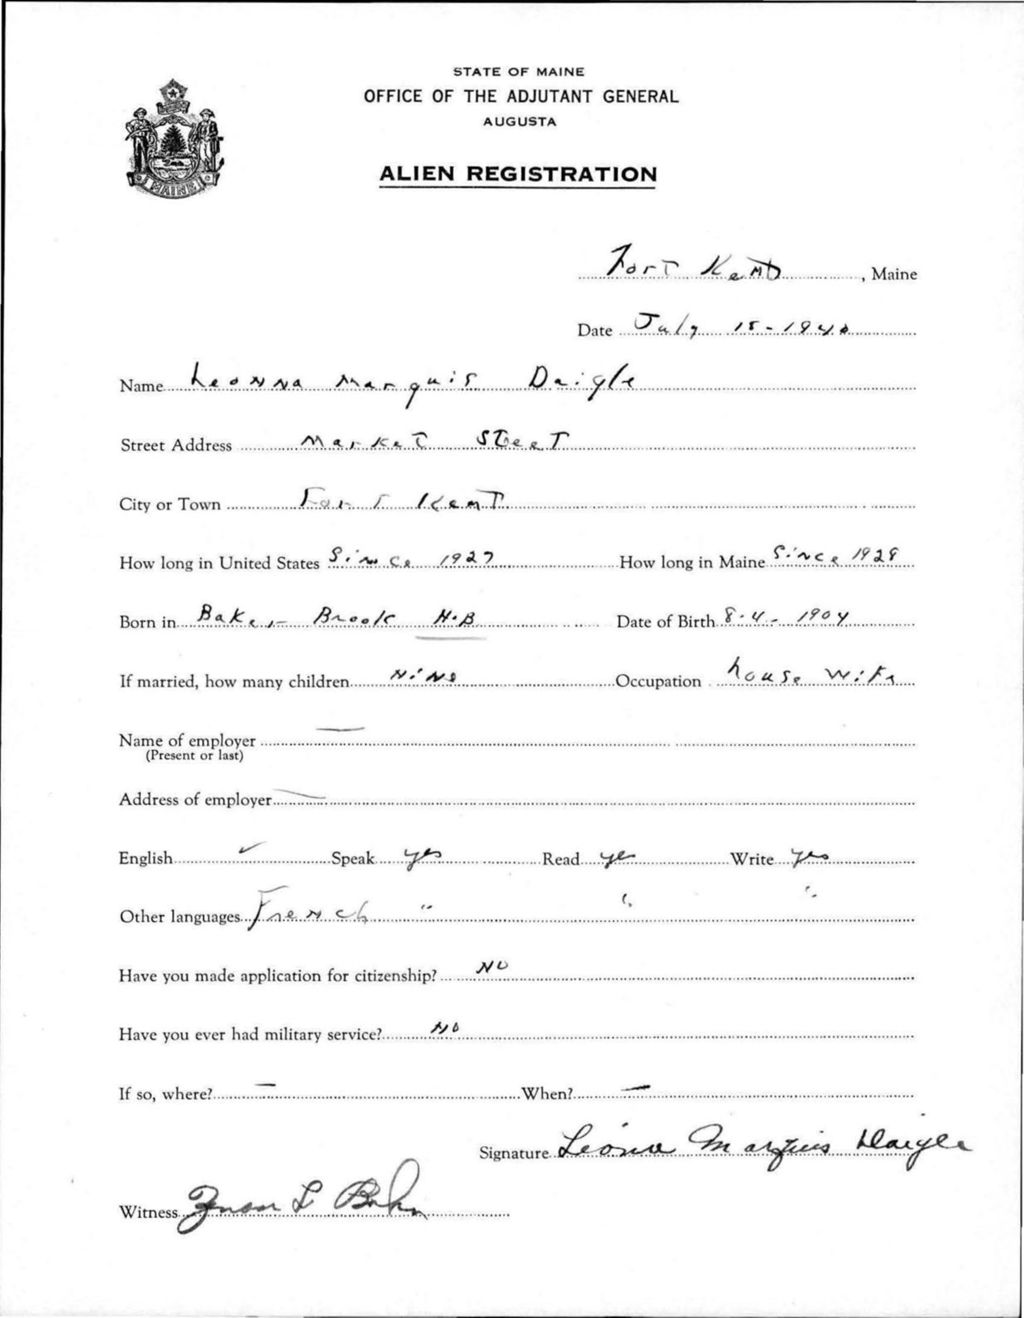 STATE OF MAINE
OFFICE OF THE ADJUTANT GENERAL
AUGUSTA
ALIEN REGISTRATION
MAINE
Fort Kent, Maine
Date July 15-1940
Name Leonna Marquis Daigle
Street Address Market Steet
City or Town Fort Kent
How long in United States Since 1927 How long in Maine Since 1928
Born in Baker Brook N.B Date of Birth 8-4-1904
If married, how many children Nine Occupation house wife
Name of employer —
(Present or last)
Address of employer —
English ✓ Speak yes Read yes Write yes
Other languages French " " "
Have you made application for citizenship? NO
Have you ever had military service? NO
If so, where? — When? —
Signature Léona Marquis Daigle
Witness L